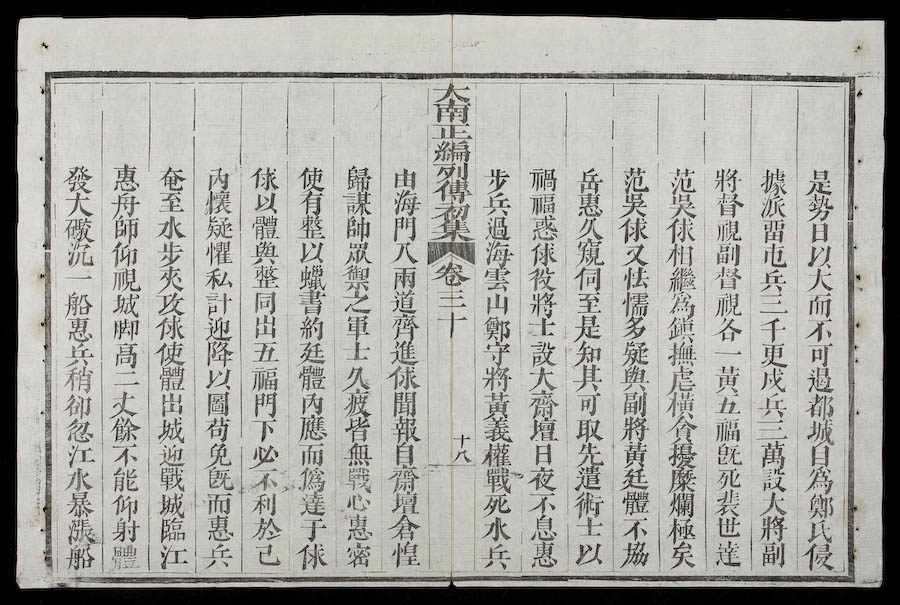 是勢日以大而不可遏都城自為鄭氏侵
據派畱屯兵三千更戍兵三萬設大將副
將督視副督視各一黃五福旣死裴世達
范吳俅相繼為鎭撫虐橫貪擾糜爛極矣
范吳俅又怯懦多疑與副將黃廷體不協
岳惠久窺伺至是知其可取先遣術士以
禍福惑俅役將士設大齋壇日夜不息惠
步兵過海雲山鄭守將黃義權戰死水兵
大南正編列傳初集 卷三十 十八
由海門入兩道齊進俅聞報自齋壇倉惶
歸謀師眾禦之軍士久疲皆無戰心惠密
使有整以蠟書約廷體內應而偽達于俅
俅以體與整同出五福門下必不利於己
內懷疑懼私計迎降以圖苟免旣而惠兵
奄至水步夾攻俅使體出城迎戰城臨江
惠舟師仰視城脚高二丈餘不能仰射體
發大礮沉一船惠兵稍卻忽江水暴漲船